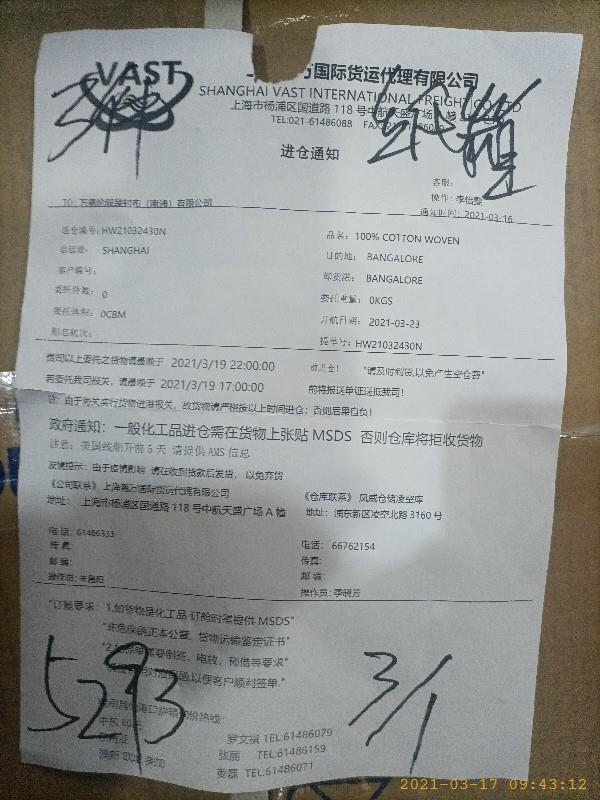 VAST
万国际货运代理有限公司
SHANGHAI VAST INTERNATIONAL FREIGHT CO., LTD
上海市杨浦区国道路 118 号中航天盛广场 A
TEL:021-61486088
进仓通知
客服:
操作: 李怡雯
TO: 万事伦服装衬布（南通）有限公司
通知时间: 2021-03-16
进仓编号: HW21032430N
品名: 100% COTTON WOVEN
SHANGHAI
目的地: BANGALORE
客户编号:
卸货港: BANGALORE
委托件数: 0
委托重量: 0KGS
委托体积: 0CBM
开航日期: 2021-03-23
船名航次:
提单号: HW21032430N
贵司以上委托之货物请最晚于 2021/3/19 22:00:00 前进仓! "请及时到货,以免产生空仓费"
若委托我司报关, 请最晚于 2021/3/19 17:00:00 前将报送单证送抵我司!
注: 由于海关实行货物进港报关, 故货物请严格按以上时间进仓; 否则后果自负!
政府通知: 一般化工品进仓需在货物上张贴 MSDS 否则仓库将拒收货物
注意: 美国线船开前 5 天 请提供 AMS 信息
友情提示: 由于疫情影响 请在收到货款后发货, 以免弃货
《公司联系》上海 国际货运代理有限公司
《仓库联系》 风威仓储凌空库
地址: 上海市杨浦区国道路 118 号中航天盛广场 A 幢
地址: 浦东新区凌空北路 3160 号
电 话: 61486333
电话: 66762154
传 真:
传真:
邮 编:
邮 编:
操作员:
操作员: 季晓芳
"订舱要求: 1.如货物是化工品 订舱时需提供 MSDS"
"非危疾病正本公章, 货物运输鉴定证书"
倒签、电放、预借等要求"
函,以便客户顺利签单."
热线:
罗文祺 TEL:61486079
张丽 TEL:61486159
澳新 欧地 美加
娄磊 TEL:61486071
5293
3/1
2021-03-17 09:43:12